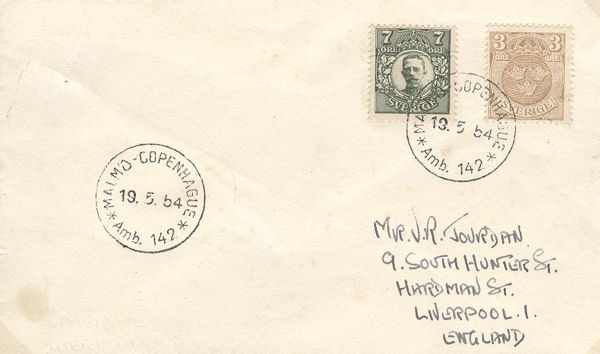 7 7
ÖRE ÖRE
SVERIGE
3 3
ÖRE ÖRE
SVERIGE
MALMÖ-COPENHAGUE
19.5.54
*Amb. 142*
MALMÖ-COPENHAGUE
19.5.54
*Amb. 142*
MR. J.R. JOURDAN.
9. SOUTH HUNTER ST.
HARDMAN ST.
LIVERPOOL. 1.
ENGLAND